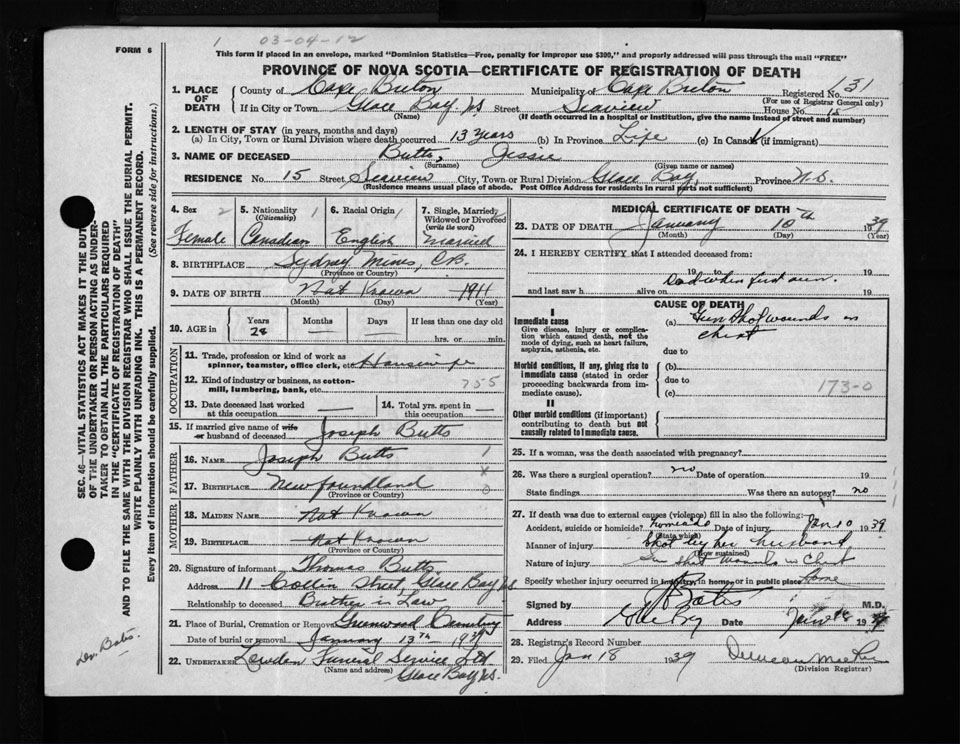 1 03-04-12
FORM 6
This form if placed in an envelope, marked "Dominion Statistics—Free, penalty for improper use $300," and properly addressed will pass through the mail "FREE"
PROVINCE OF NOVA SCOTIA—CERTIFICATE OF REGISTRATION OF DEATH
1. PLACE OF DEATH
County of Cape Breton Municipality of Cape Breton Registered No. 131
(For use of Registrar General only)
If in City or Town Glace Bay, NS Street Seaview House No. 15
(Name) (If death occurred in a hospital or institution, give the name instead of street and number)
2. LENGTH OF STAY (in years, months and days)
(a) In City, Town or Rural Division where death occurred 13 years (b) In Province Life (c) In Canada (if immigrant)
3. NAME OF DECEASED Butts, Jessie
(Surname) (Given name or names)
RESIDENCE No. 15 Street Seaview City, Town or Rural Division Glace Bay, Province N.S.
(Residence means usual place of abode. Post Office Address for residents in rural parts not sufficient)
4. Sex 2 Female
5. Nationality (Citizenship) 1 Canadian
6. Racial Origin 1 English
7. Single, Married, Widowed or Divorced (write the word) 2 Married
8. BIRTHPLACE Sydney Mines, C.B.
(Province or Country)
9. DATE OF BIRTH Not Known 1911
(Month) (Day) (Year)
10. AGE in Years Months Days If less than one day old
28 — — hrs. or min.
OCCUPATION
11. Trade, profession or kind of work as spinner, teamster, office clerk, etc. Housewife
12. Kind of industry or business, as cotton-mill, lumbering, bank, etc. 755
13. Date deceased last worked at this occupation —
14. Total yrs. spent in this occupation —
15. If married give name of wife or husband of deceased Joseph Butts
FATHER
16. Name Joseph Butts 1
17. BIRTHPLACE Newfoundland x 0
(Province or Country)
MOTHER
18. MAIDEN NAME Not Known
19. BIRTHPLACE Not Known
(Province or Country)
20. Signature of informant Thomas Butts
Address 11 Street, Glace Bay NS
Relationship to deceased Brother in Law
21. Place of Burial, Cremation or Removal Greenwood Cemetery
Date of burial or removal January 13th 1939
22. UNDERTAKER Funeral Service Ltd
(Name and address) Glace Bay NS.
MEDICAL CERTIFICATE OF DEATH
23. DATE OF DEATH January 10th 1939
(Month) (Day) (Year)
24. I HEREBY CERTIFY that I attended deceased from:
19 to 19
Dead when first seen.
and last saw h alive on 19
CAUSE OF DEATH
I
Immediate cause
Give disease, injury or complication which caused death, not the mode of dying, such as heart failure, asphyxia, asthenia, etc.
(a) Gun Shot wounds in chest
due to
Morbid conditions, if any, giving rise to immediate cause (stated in order proceeding backwards from immediate cause)
(b)
due to
(c) 173-0
II
Other morbid conditions (if important) contributing to death but not causally related to immediate cause.
25. If a woman, was the death associated with pregnancy?
26. Was there a surgical operation? no Date of operation 19
State findings Was there an autopsy? no
27. If death was due to external causes (violence) fill in also the following:
Accident, suicide or homicide? homicide Date of injury Jan 10 1939
(State which)
Manner of injury Shot by her husband
(How sustained)
Nature of injury Gun shot wounds in chest
Specify whether injury occurred in industry, in home, or in public place home
Signed by Bates M.D.
Address Date Jan 18 1939
28. Registrar's Record Number
29. Filed Jan 18 1939 Duncan
(Division Registrar)
SEC. 46—VITAL STATISTICS ACT MAKES IT THE DUTY
OF THE UNDERTAKER OR PERSON ACTING AS UNDER-
TAKER TO OBTAIN ALL THE PARTICULARS REQUIRED
IN THE "CERTIFICATE OF REGISTRATION OF DEATH"
AND TO FILE THE SAME WITH THE DIVISION REGISTRAR WHO SHALL ISSUE THE BURIAL PERMIT.
WRITE PLAINLY WITH UNFADING INK. THIS IS A PERMANENT RECORD.
Every item of information should be carefully supplied. (See reverse side for instructions.)
Dr. Bates.